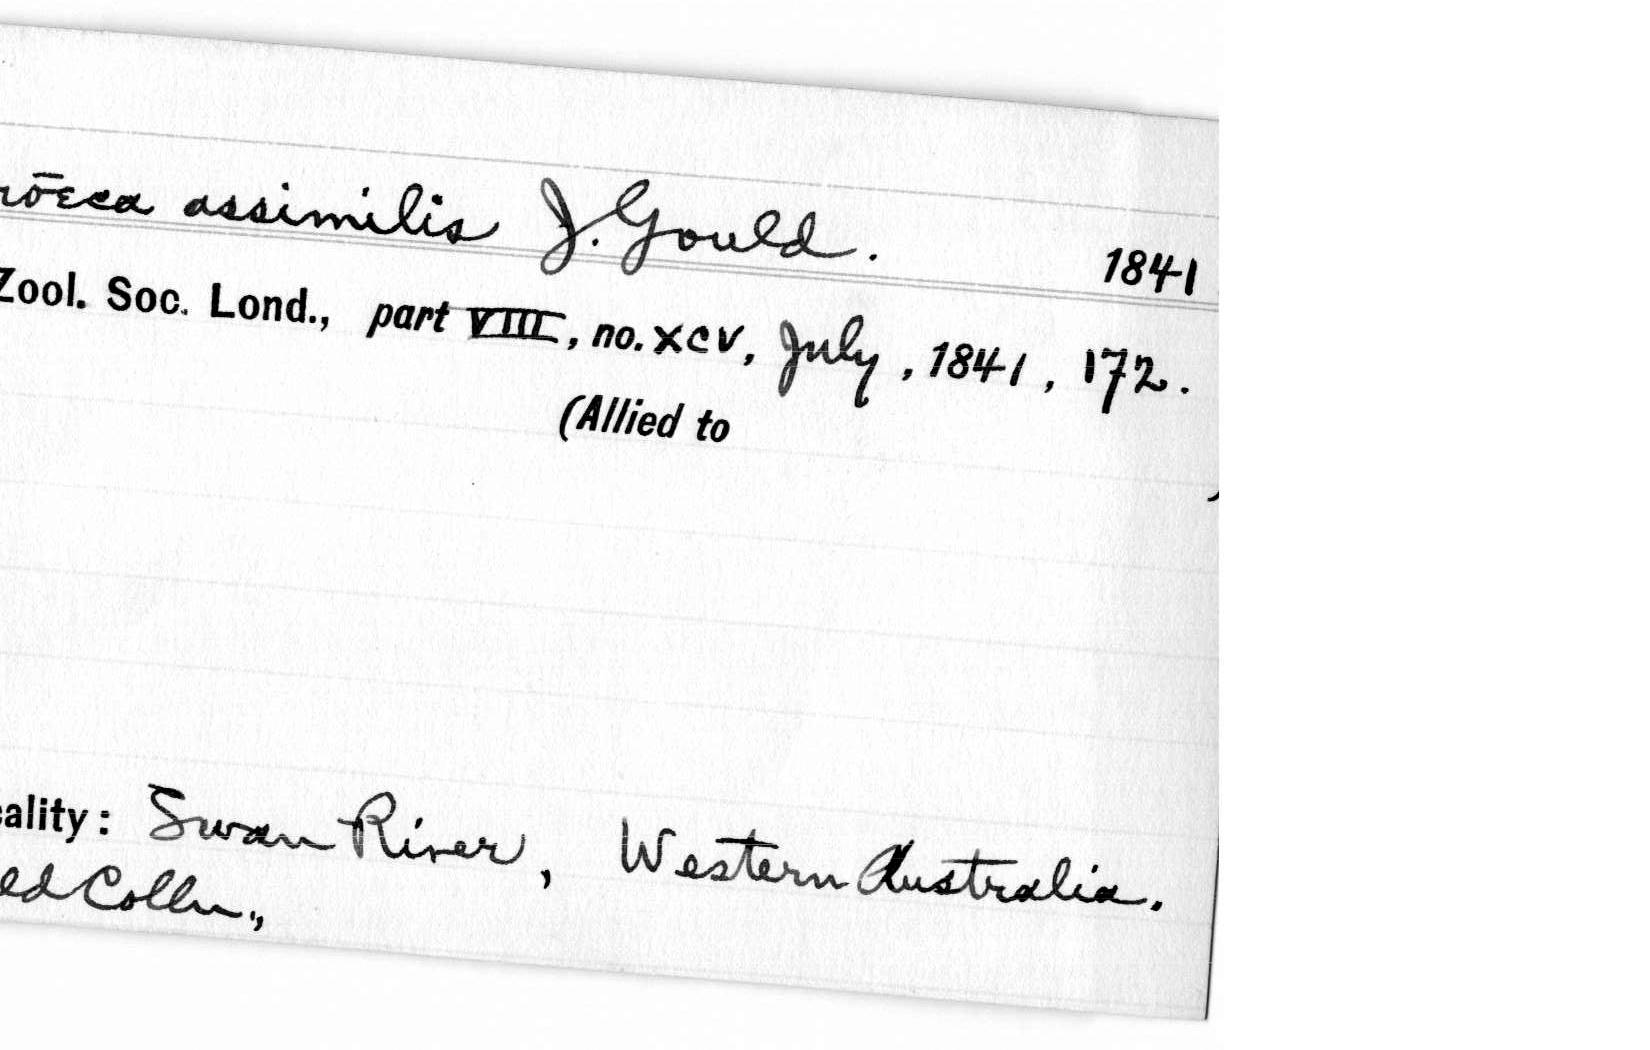 assimilis J. Gould. 1841
Zool. Soc. Lond., part VIII, no. XCV, July, 1841, 172.
(Allied to
Swan River, Western Australia.
Colln.,